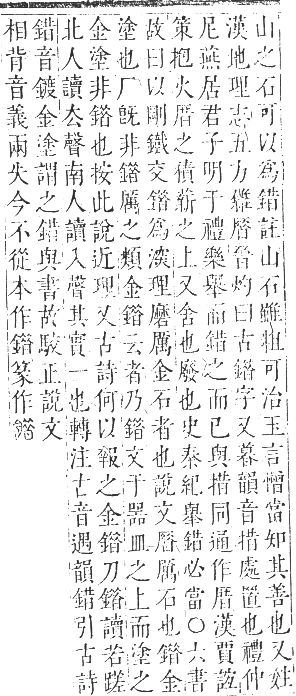 山之石可以為錯註山石雖粗可治玉言憎當知其善也又姓
漢地理志五方雜厝晉灼曰古錯字又暮韻音措處置也禮仲
尼燕居君子明于禮樂舉而錯之而已與措同通作厝漢賈誼
策抱火厝之積薪之上又舍也廢也史秦紀舉錯必當○六書
故曰以剛鐵交鎈為湥理磨厲金石者也說文厝厲石也鎈金
塗也厂旣非鎈厲之類金鎈云者乃鎈文于器皿之上而塗之
金塗非鎈也按此說近理又古詩何以報之金鎈刀鎈讀若蹉
北人讀去聲南人讀入聲其實一也轉注古音遇韻錯引古詩
錯音鍍金塗謂之錯與書故駮正說文
相背音義兩失今不從本作鎈篆作鎈